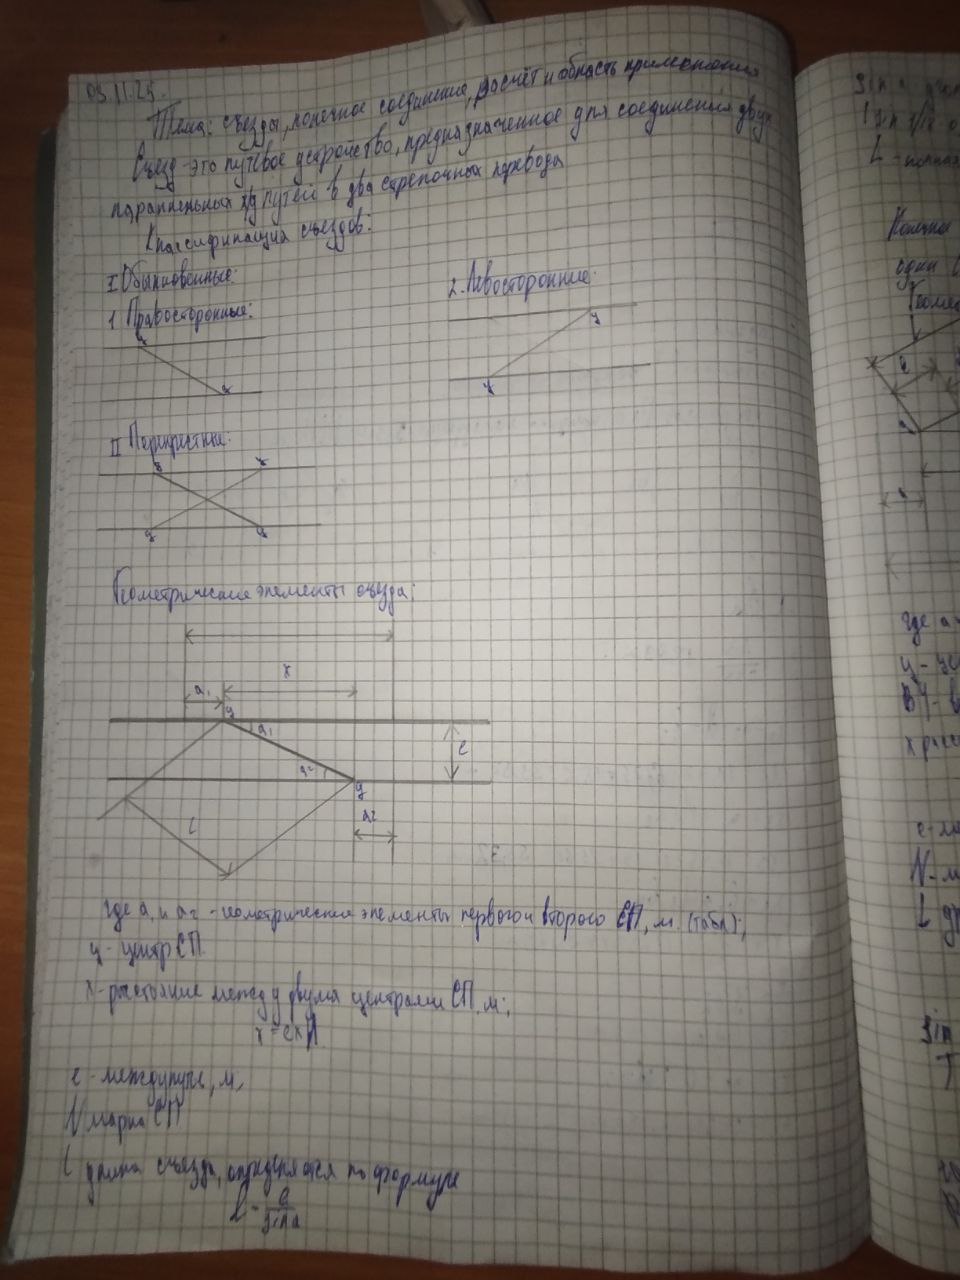 03.11.25.
Тема: съезды, конечное соединение, расчёт и область применения
Съезд - это путевое устройство, предназначенное для соединения двух
параллельных жд путей в два стрелочных перевода
Классификация съездов:
I Обыкновенные:
1. Правосторонные:
2. Левосторонние:
II Перекрестные:
Геометрические элементы съезда:
x
a₁
ц
α₁
e
α₂
ц
a₂
l
где a₁ и a₂ - геометрические элементы первого и второго СП, м. (табл);
ц - центр СП.
x - расстояние между двума центрами СП, м;
x = e×N
e - междупутье, м,
N марка СП
L длина съезда, определяется по формуле
L = e/sinα
sin
L -
Конечн
один
Геомет
где a
ц - це
e - м
N - м
L д
sin